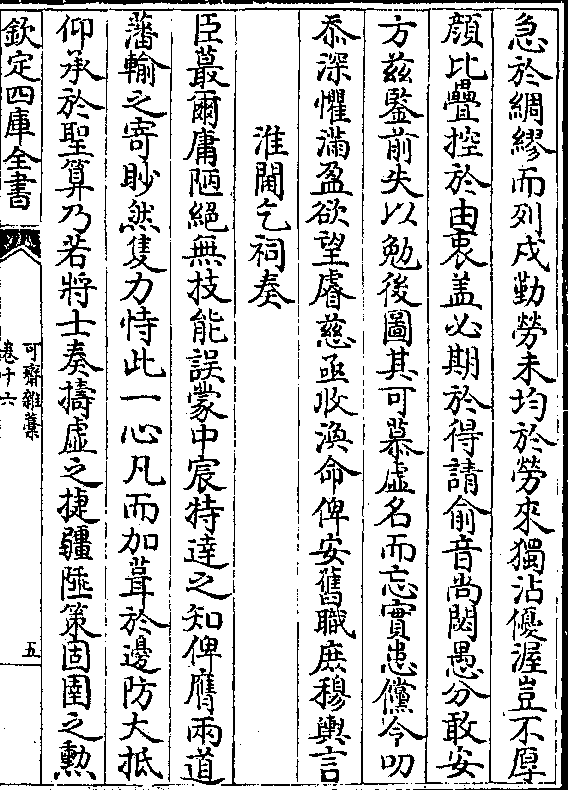 急於綢繆而列戍勤勞未均於勞來獨沾優渥豈不厚
顔比疊控於由衷盖必期於得請俞音尚閟愚分敢安
方兹鍳前失以勉後圖其可慕虛名而忘實患儻今叨
忝深懼滿盈欲望睿慈亟收渙命俾安舊職庶穆輿言
淮閫乞祠奏
臣蕞爾庸陋絕無技能誤蒙中宸特達之知俾膺兩道
藩輸之寄眇然隻力恃此一心凡而加葺於邊防大抵
仰承於聖算乃若將士奏擣虛之捷疆陲策固圉之勲
欽定四庫全書
可齋雜藁
卷十六
五